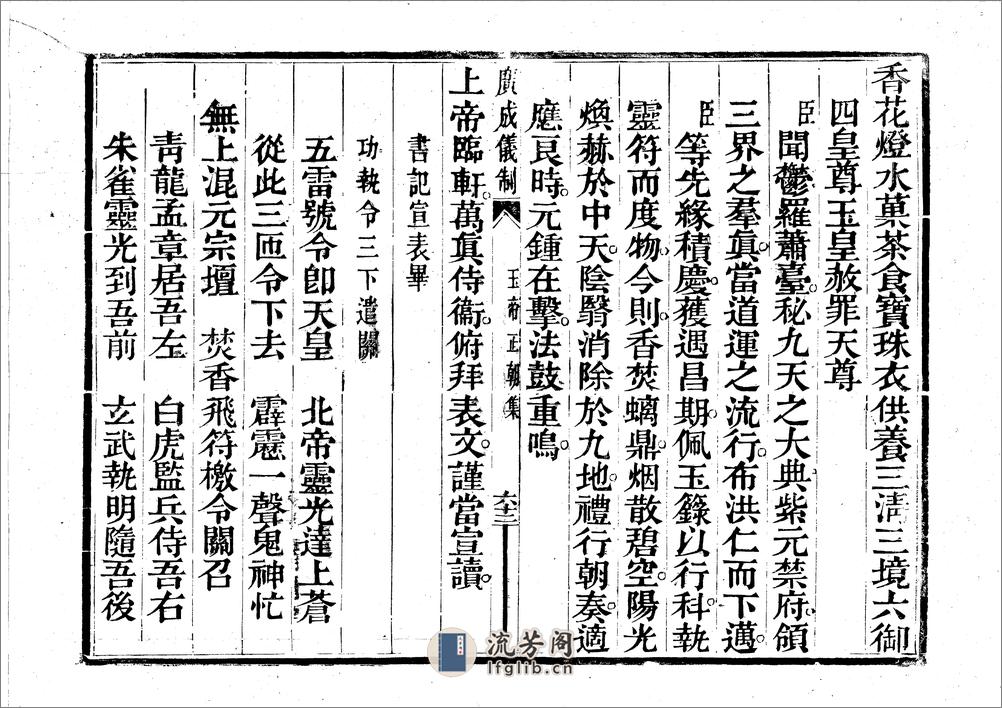 香花燈水菓茶食寶珠衣供養三清三境六御
四皇尊玉皇赦罪天尊
臣聞鬱羅蕭臺秘九天之大典紫元禁府領
三界之羣眞當道運之流行布洪仁而下邁
臣等先緣積慶獲遇昌期佩玉籙以行科執
靈符而度物今則香焚螭鼎烟散碧空陽光
煥赫於中天陰翳消除於九地禮行朝奏適
應良時元鍾在擊法鼓重鳴
廣成儀制 玉帝正朝集 六十三
上帝臨軒萬眞侍衞俯拜表文謹當宣讀
書記宣表畢
功執令三下遣關
五雷號令卽天皇 北帝靈光達上蒼
從此三匝令下去 霹靂一聲鬼神忙
無上混元宗壇 焚香飛符檄令關召
靑龍孟章居吾左 白虎監兵侍吾右
朱雀靈光到吾前 玄武執明隨吾後
流芳阁
lfglib.cn